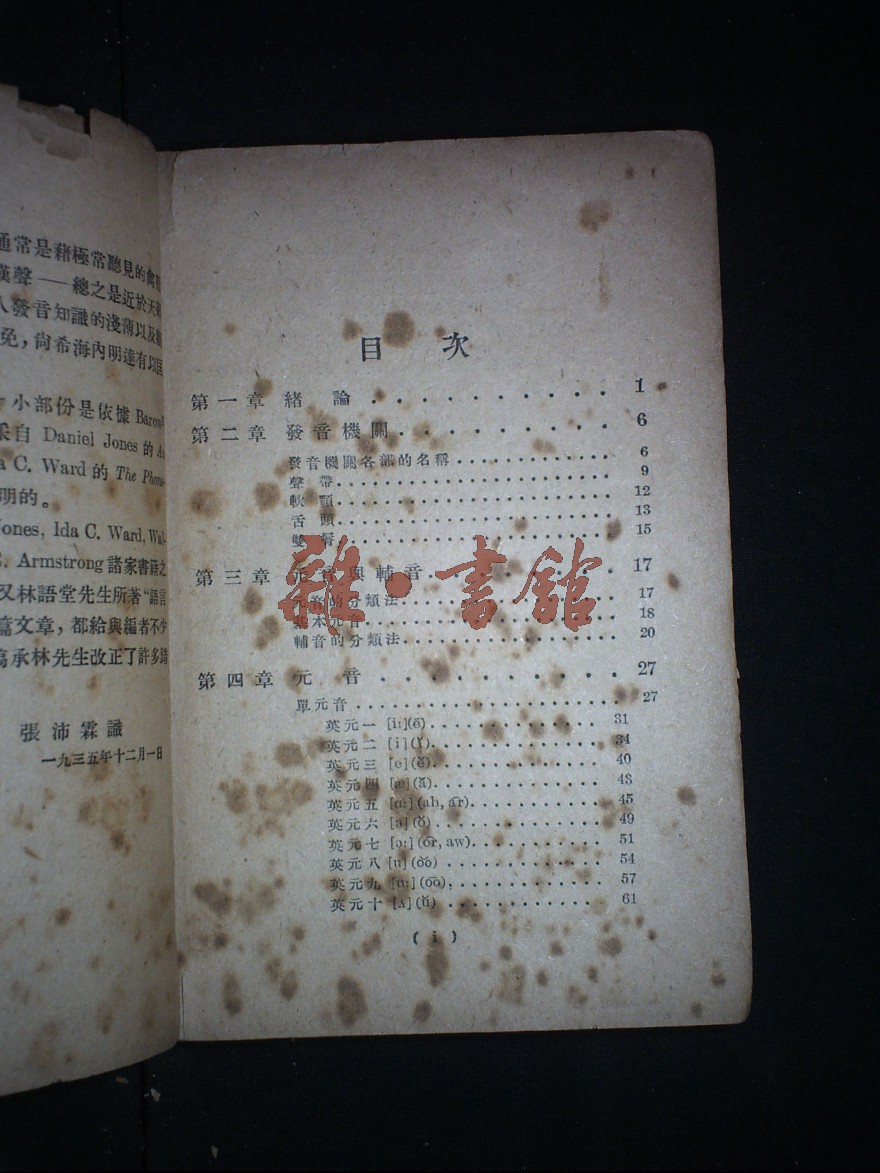 通常是藉極常聽見的
聲——總之是近於天
人發音知識的淺薄以及
免，尙希海內明達有以匡
小部份是依據 Baron
采自 Daniel Jones 的
C. Ward 的 The Phone-
明的。
Jones, Ida C. Ward, Wal-
Armstrong 諸家書籍之
又林語堂先生所著“語言
篇文章，都給與編者不少
承林先生改正了許多錯
張沛霖識
一九三五年十二月一日
目 次
第一章 緒 論 . . . . . . . . . . 1
第二章 發音機關 . . . . . . . . . 6
發音機關各部的名稱 . . . . . . . . . 6
聲 帶 . . . . . . . . . 9
軟 顎 . . . . . . . . . 12
舌 頭 . . . . . . . . . 13
雙 唇 . . . . . . . . . 15
第三章 元音與輔音 . . . . . . . . 17
元音的分類法 . . . . . . . . . 17
基本元音 . . . . . . . . . 18
輔音的分類法 . . . . . . . . . 20
第四章 元 音 . . . . . . . . . 27
單元音 . . . . . . . . . 27
英元一 [i:] (ē) . . . . . . . . . 31
英元二 [i] (ĭ) . . . . . . . . . 34
英元三 [e] (ĕ) . . . . . . . . . 40
英元四 [æ] (ă) . . . . . . . . . 43
英元五 [ɑ:] (ah, är) . . . . . . . . . 45
英元六 [ɔ] (ŏ) . . . . . . . . . 49
英元七 [ɔ:] (ôr, aw) . . . . . . . . . 51
英元八 [u] (o͝o) . . . . . . . . . 54
英元九 [u:] (o͞o) . . . . . . . . . 57
英元十 [ʌ] (ŭ) . . . . . . . . . 61
( i )
雜·書館